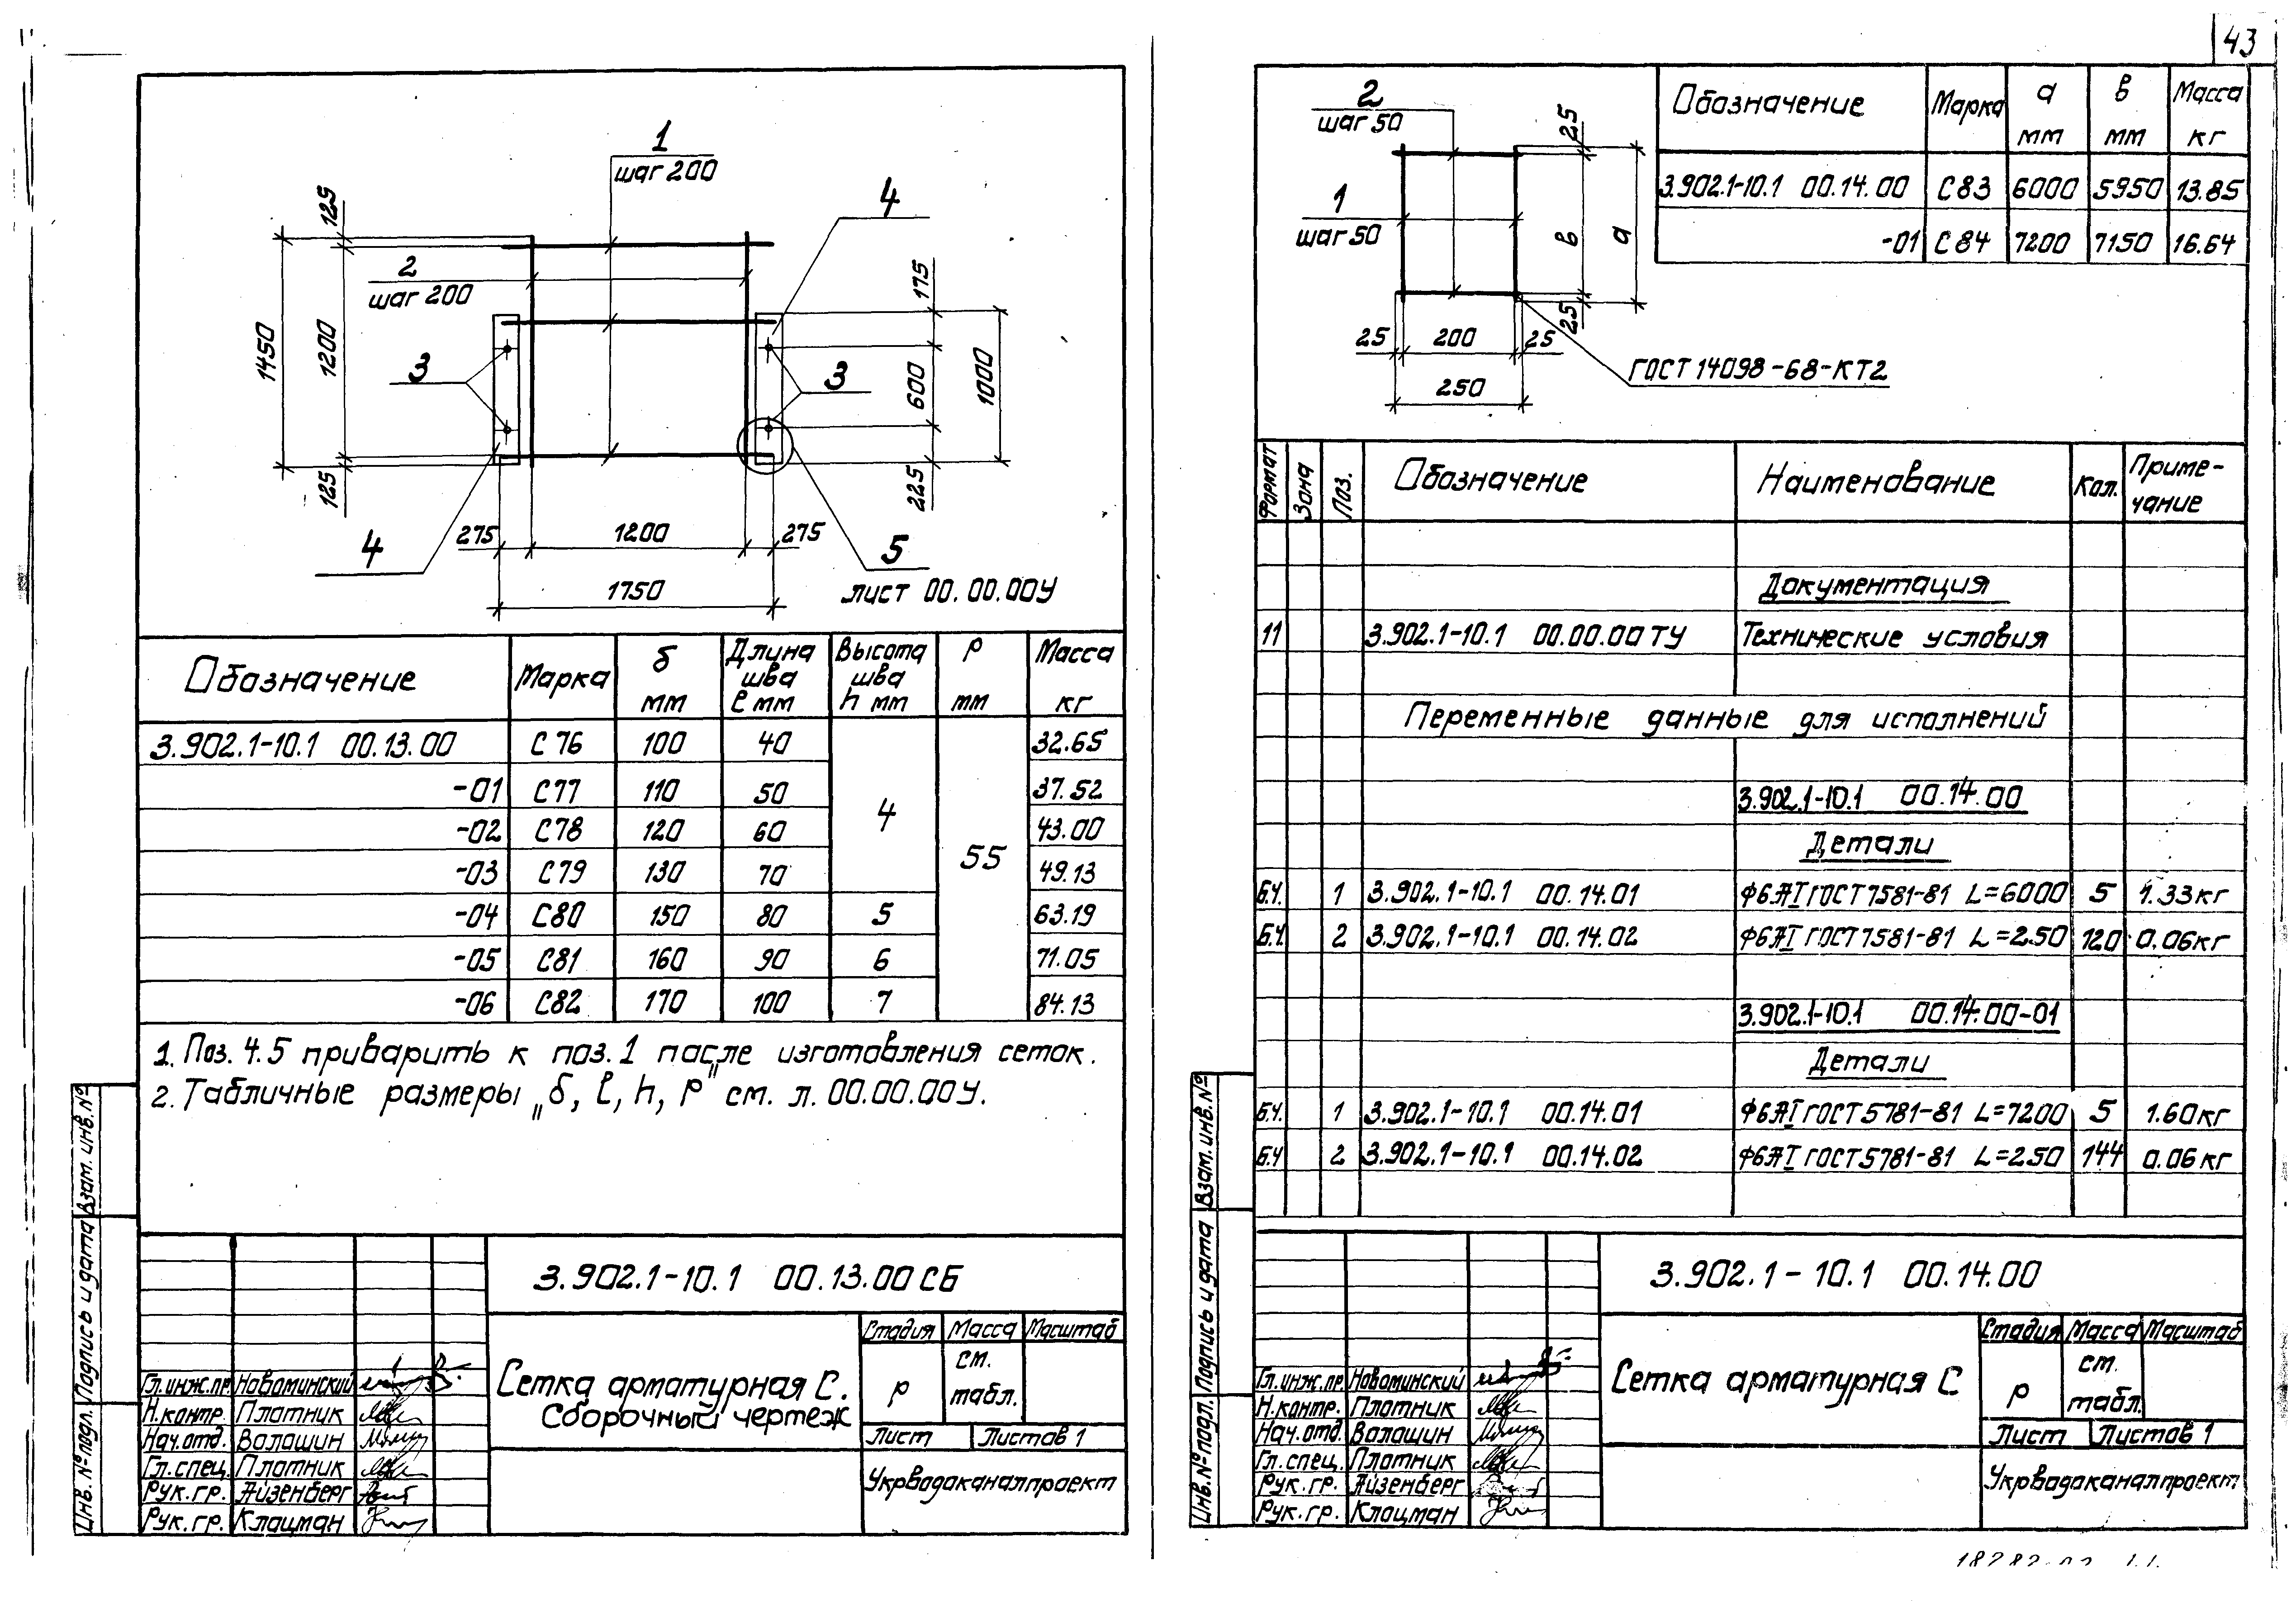 43
1
шаг 200
4
125
2
шаг 200
175
1450
1200
3
3
600
1000
125
225
275
1200
275
4
5
1750
лист 00.00.00У
Обозначение Марка б мм Длина шва ℓ мм Высота шва h мм Р мм Масса кг
3.902.1-10.1 00.13.00 С76 100 40 4 55 32.65
-01 С77 110 50 37.52
-02 С78 120 60 43.00
-03 С79 130 70 49.13
-04 С80 150 80 5 63.19
-05 С81 160 90 6 71.05
-06 С82 170 100 7 84.13
1. Поз. 4.5 приварить к поз.1 после изготовления сеток.
2. Табличные размеры „б, ℓ, h, Р" см. л. 00.00.00У.
Взам. инв. №
Подпись и дата
Инв. № подл.
3.902.1-10.1 00.13.00 СБ
Сетка арматурная С.
Сборочный чертеж
Стадия Масса Масштаб
Р см. табл.
Лист Листов 1
Укрводоканалпроект
Гл.инж.пр. Новоминский
Н.контр. Плотник
Нач.отд. Волошин
Гл.спец. Плотник
Рук.гр. Айзенберг
Рук.гр. Клоцман
2
шаг 50
1
шаг 50
25
в
а
25
25
200
25
250
ГОСТ 14098-68-КТ2
Обозначение Марка а мм в мм Масса кг
3.902.1-10.1 00.14.00 С83 6000 5950 13.85
-01 С84 7200 7150 16.64
Формат Зона Поз. Обозначение Наименование Кол. Приме-
чание
Документация
11 3.902.1-10.1 00.00.00 ТУ Технические условия
Переменные данные для исполнений
3.902.1-10.1 00.14.00
Детали
Б.Ч. 1 3.902.1-10.1 00.14.01 Ф6АI ГОСТ 7581-81 L=6000 5 1.33кг
Б.Ч. 2 3.902.1-10.1 00.14.02 Ф6АI ГОСТ 7581-81 L=250 120 0.06кг
3.902.1-10.1 00.14.00-01
Детали
Б.Ч. 1 3.902.1-10.1 00.14.01 Ф6АI ГОСТ 5781-81 L=7200 5 1.60кг
Б.Ч 2 3.902.1-10.1 00.14.02 Ф6АI ГОСТ 5781-81 L=250 144 0.06кг
Взам. инв. №
Подпись и дата
Инв. № подл.
3.902.1-10.1 00.14.00
Сетка арматурная С
Стадия Масса Масштаб
Р см. табл.
Лист Листов 1
Укрводоканалпроект
Гл.инж.пр. Новоминский
Н.контр. Плотник
Нач.отд. Волошин
Гл.спец. Плотник
Рук.гр. Айзенберг
Рук.гр. Клоцман